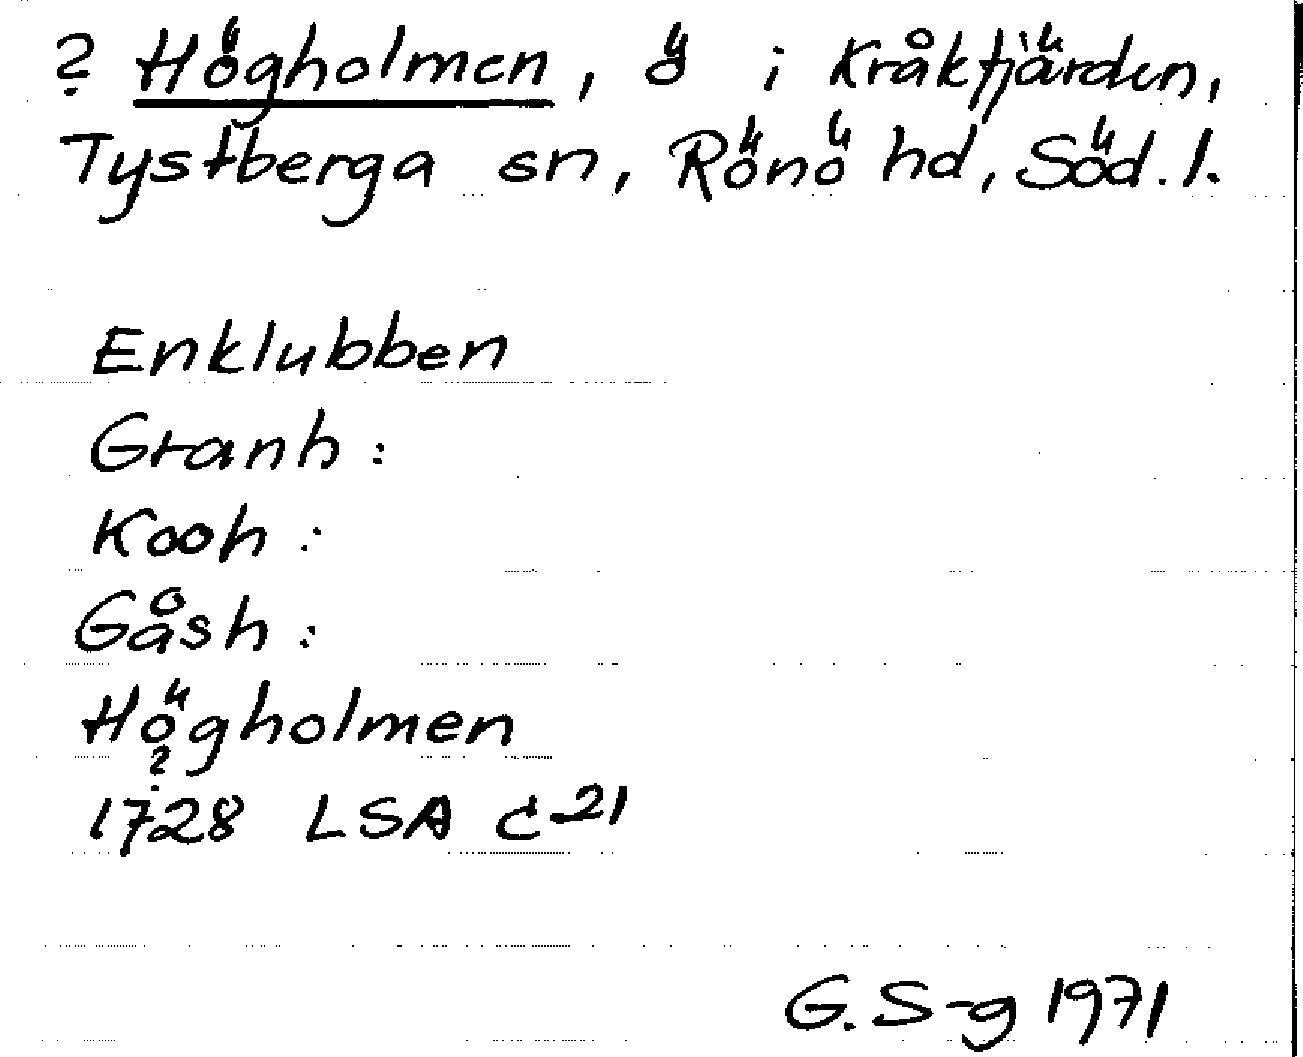 ? Högholmen, ö i Kråkfjärden,
Tystberga sn, Rönö hd, Söd. l.
Enklubben
Granh:
Kooh:
Gåsh:
Högholmen
?
1728 LSA C-21
G. S-g 1971